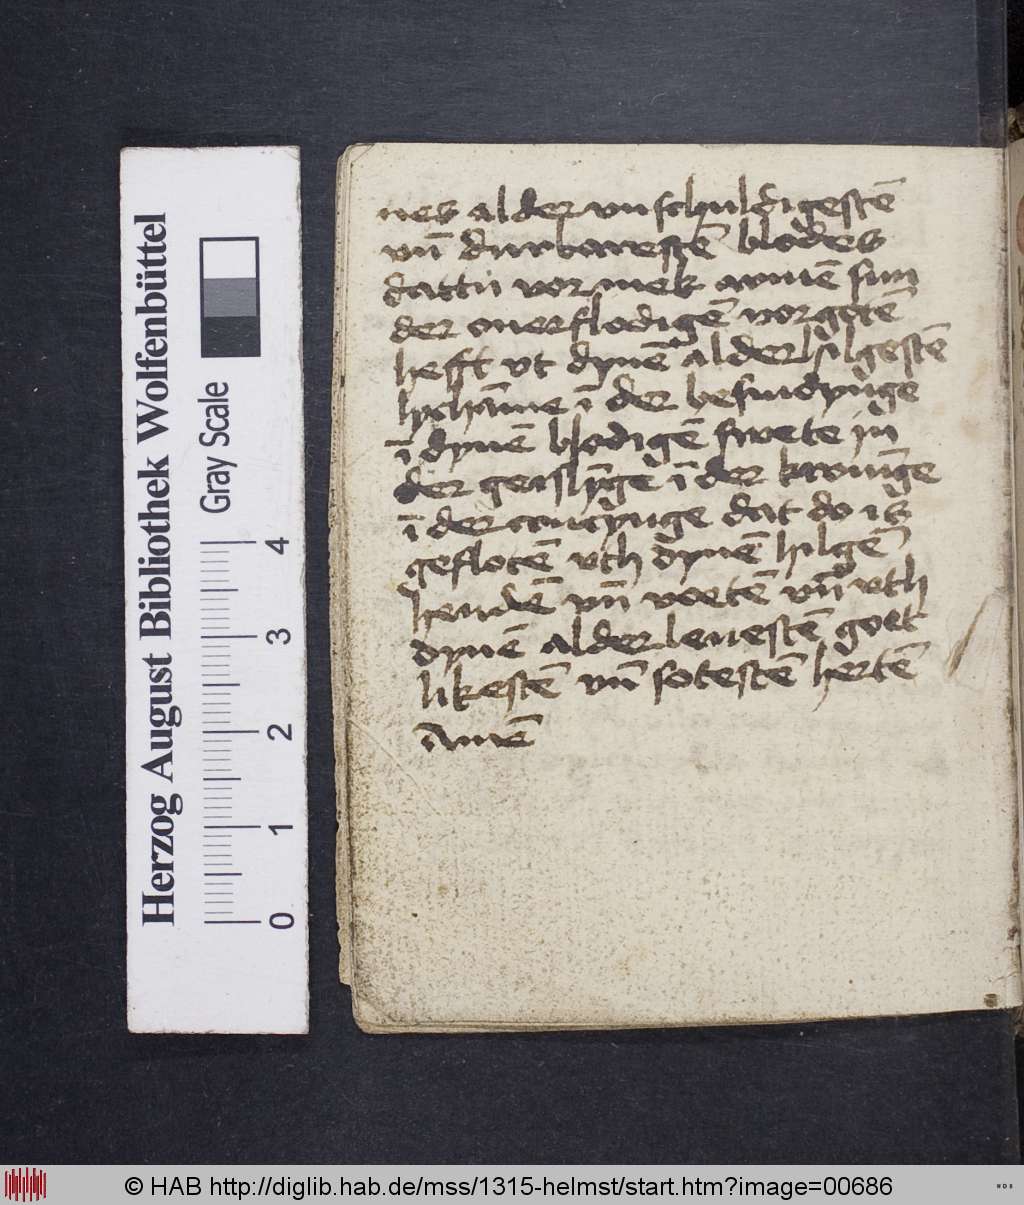 nes alder vnschuldigestē
vn̄ durbarestē blodes
dattu vor mek armē sun
der ouerflodigē vorgotē
hefft vt dynē alderhilgestē
lychāme ī der besnidynge
ī dynē blodigē swete īn
der geislȳge ī der kronīge
ī der cruczynge dat do is
geflotē vth dynē hilgē
hendē vn̄ voetē vn̄ vth
dynē alder leuestē goet
likestē vn̄ sotestē hertē
Amē
Herzog August Bibliothek Wolfenbüttel
Gray Scale
0 1 2 3 4
© HAB http://diglib.hab.de/mss/1315-helmst/start.htm?image=00686